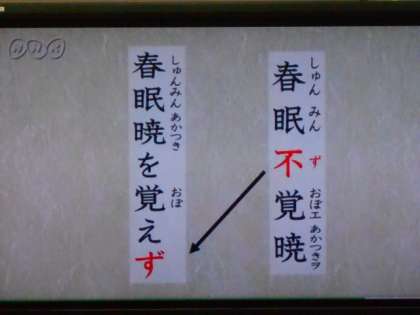 NHK
春眠不覚暁
しゅんみんずおぼエあかつきヲ
春眠暁を覚えず
しゅんみんあかつきおぼ